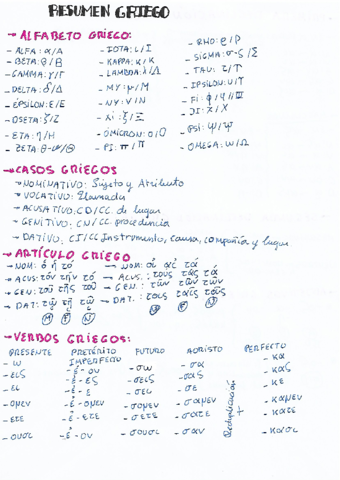 RESUMEN GRIEGO
→ ALFABETO GRIEGO:
- ALFA: α/Α
- BETA: β/Β
- GAMMA: γ/Γ
- DELTA: δ/Δ
- ÉPSILON: ε/Ε
- DSETA: ζ/Ζ
- ETA: η/Η
- ZETA: θ-ϑ/Θ
- IOTA: ι/Ι
- KAPPA: κ/Κ
- LAMBDA: λ/Λ
- MY: μ/Μ
- NY: ν/Ν
- XI: ξ/Ξ
- ÓMICRON: ο/Ο
- PI: π/Π
- RHO: ρ/Ρ
- SIGMA: σ-ς/Σ
- TAU: τ/Τ
- IPSILON: υ/Υ
- FI: φ/
- JI: χ/Χ
- PSI: ψ/Ψ
- OMEGA: ω/Ω
→ CASOS GRIEGOS
→ NOMINATIVO: Sujeto y Atributo
→ VOCATIVO: Llamada
→ ACUSATIVO: CD/CC de lugar
→ GENITIVO: CN/CC procedencia
→ DATIVO: CI/CC Instrumento, causa, compañía y lugar
→ ARTÍCULO GRIEGO
→ NOM: ὁ ἡ τό → NOM: οἱ αἱ τά
→ ACUS: τόν τήν τό → ACUS.: τούς τάς τά
→ GEN: τοῦ τῆς τοῦ → GEN.: τῶν τῶν τῶν
→ DAT: τῷ τῇ τῷ → DAT.: τοῖς ταῖς τοῖς
M F N M F N
→ VERBOS GRIEGOS:
PRESENTE PRETÉRITO IMPERFECTO FUTURO AORISTO PERFECTO
- ω -ἐ- ον - σω - σα - κα
- εις -ἐ- ες - σεις - σας - κας
- ει -ἐ- ε - σει - σε - κε
- ομεν -ἐ- ομεν - σομεν - σαμεν - καμεν
- ετε -ἐ- ετε - σετε - σατε - κατε
- ουσι -ἐ- ον - σουσι - σαν - κασι
Reduplicación +